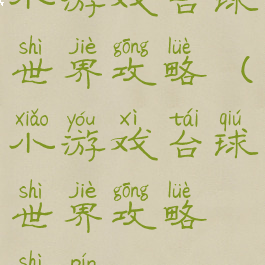 小游戏台球
shì jiè gōng lüè
世界攻略（
xiǎo yóu xì tái qiú
小游戏台球
shì jiè gōng lüè
世界攻略
shì pín